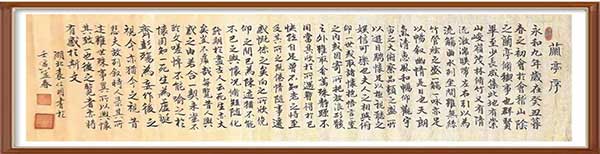 蘭亭序
永和九年歲在癸丑暮
春之初會于會稽山陰
之蘭亭脩禊事也群賢
畢至少長咸集此地有崇
山峻領茂林脩竹又有清
流激湍暎帶左右引以為
流觴曲水列坐其次雖無絲
竹管弦之盛一觴一詠亦足
以暢叙幽情是日也天朗
氣清惠風和暢仰觀宇
宙之大俯察品類之盛所
以遊目騁懷足以極視聽之
娛信可樂也夫人之相與俯
仰一世或取諸懷抱悟言一室
之內或因寄所託放浪形骸
之外雖趣舍萬殊靜躁不
同當其欣於所遇暫得於己
快然自足不知老之將至
及其所之既倦情隨事遷
感慨係之矣向之所欣俛
仰之間已為陳迹猶不
能不以之興懷況脩短隨化
終期於盡古人云死生亦大
矣豈不痛哉每攬昔人興
感之由若合一契未嘗不
臨文嗟悼不能喻之於
懷固知一死生為虛誕
齊彭殤為妄作後之
視今亦猶今之視昔
悲夫故列叙時人錄其所
述雖世殊事異所以興懷
其致一也後之覽者亦將
有感於斯文
湖北
春